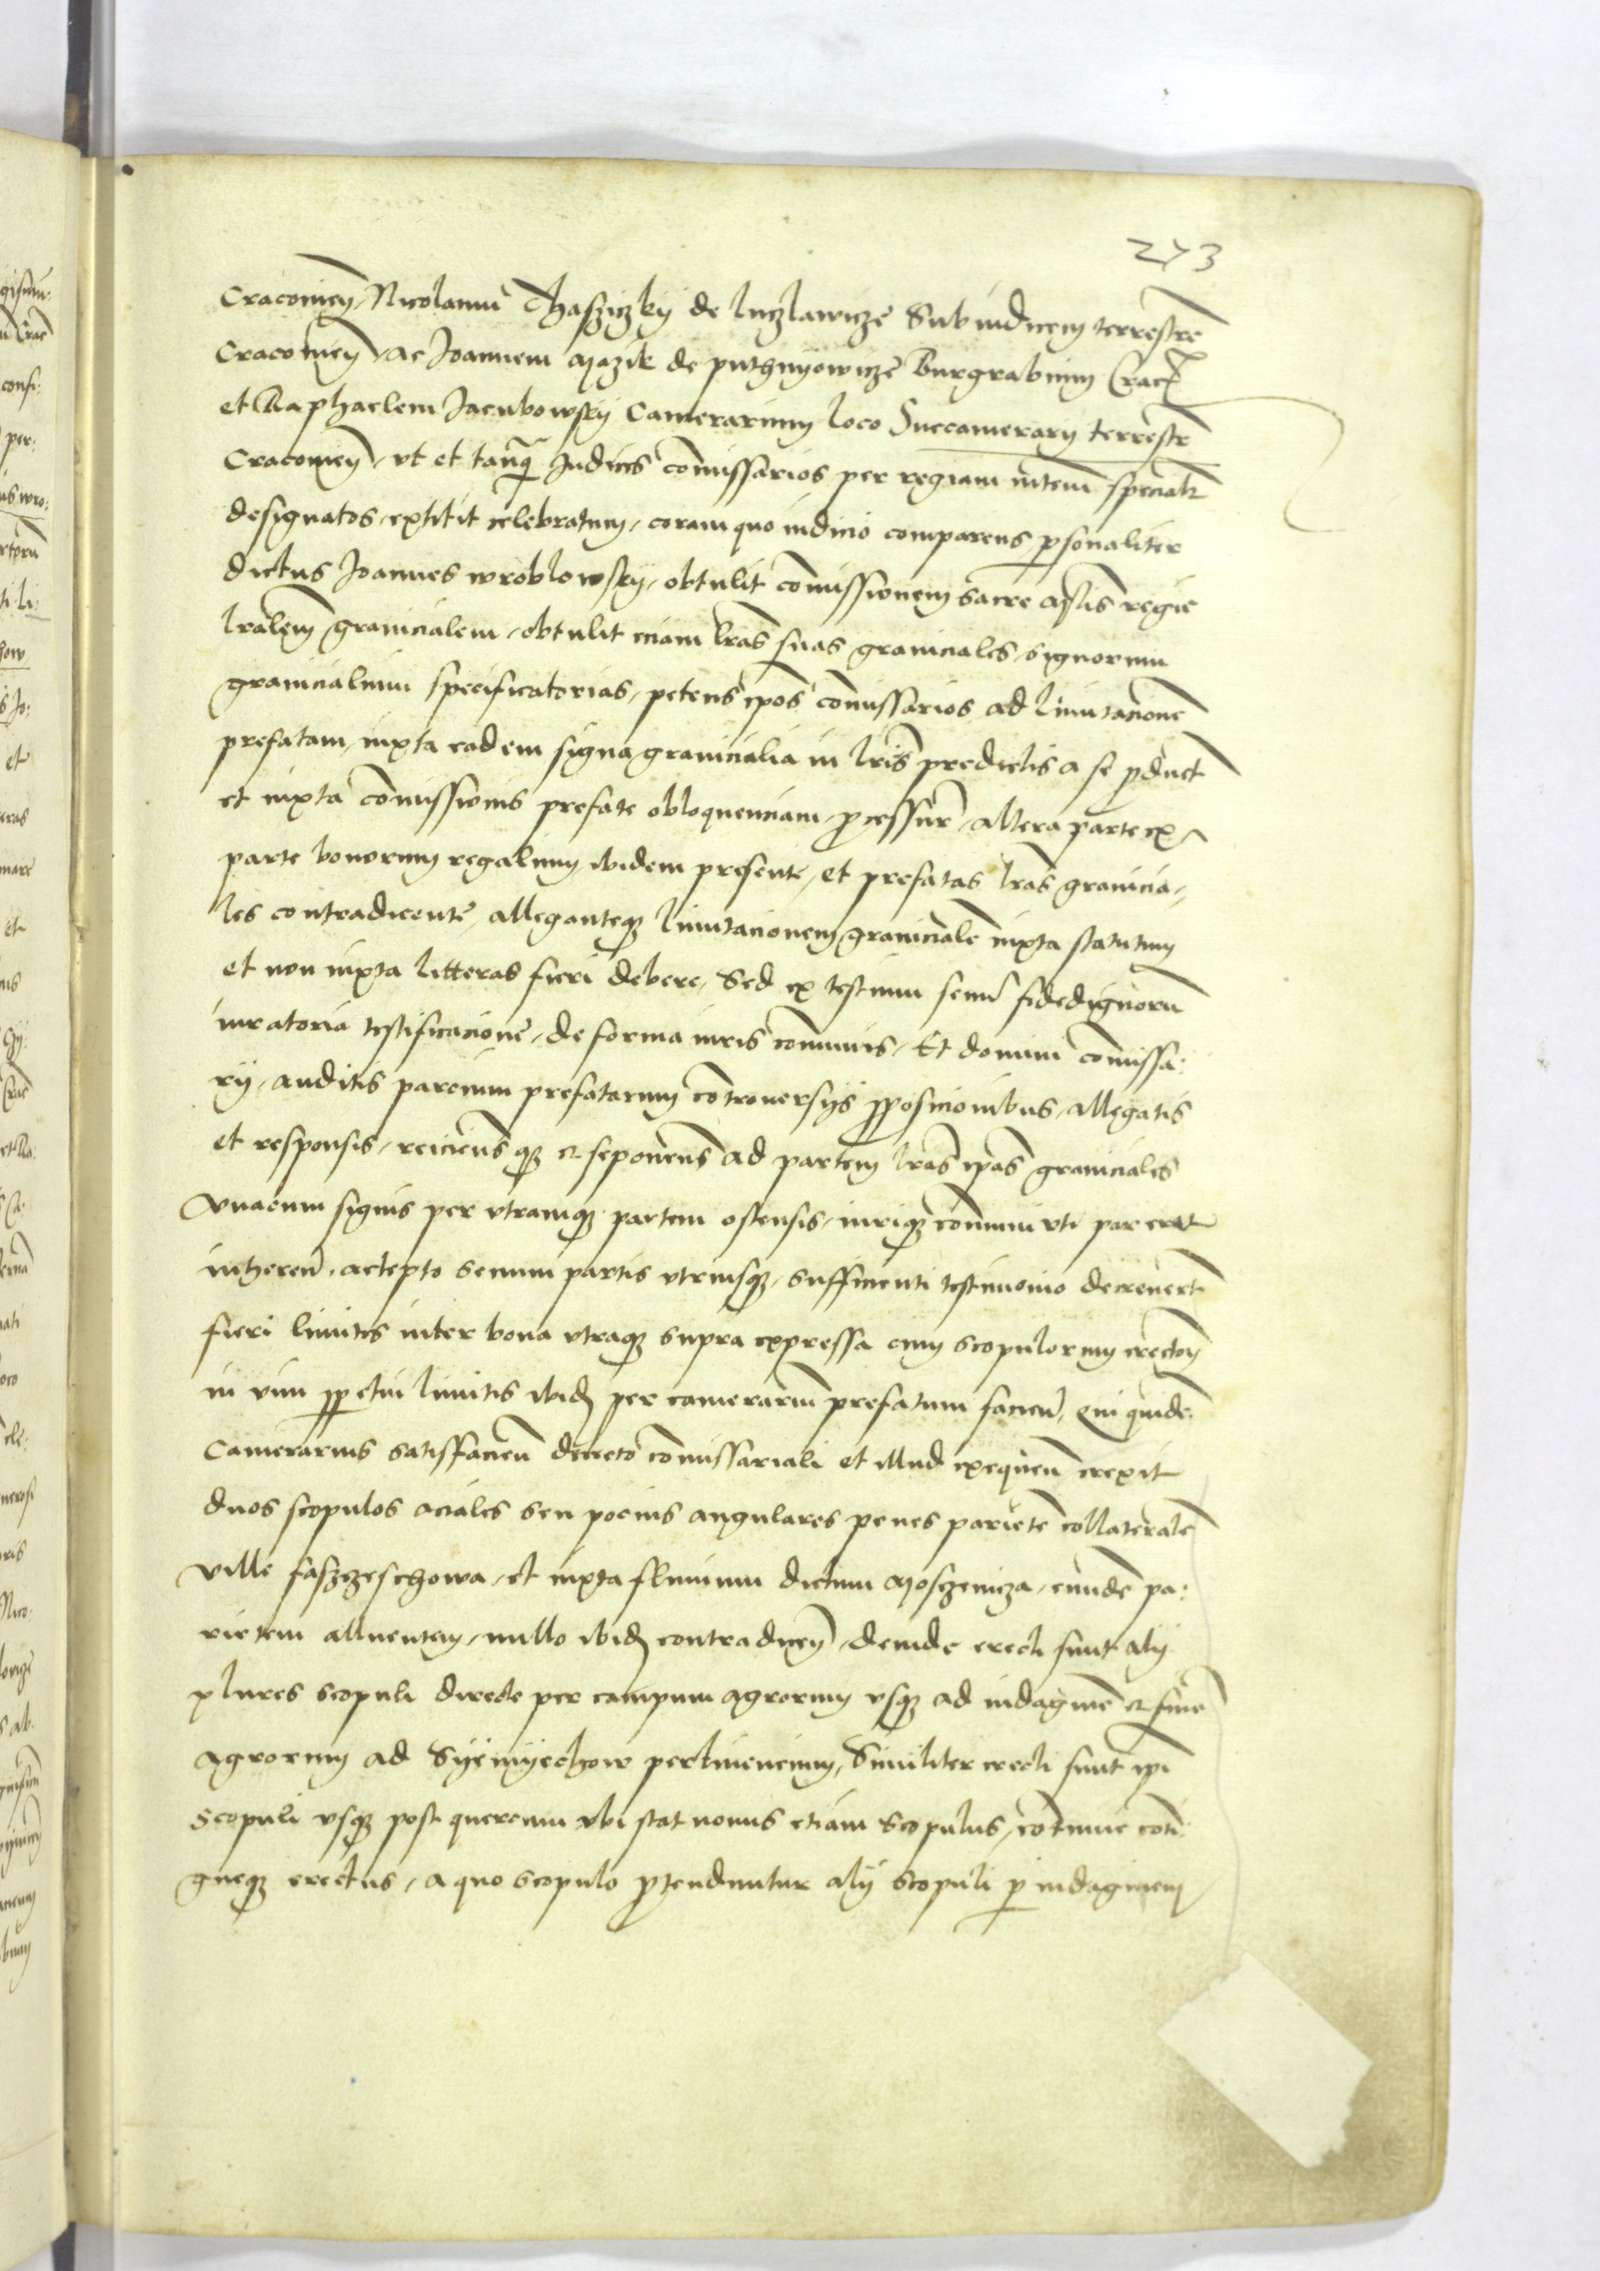 273
Cracovien, Nicolaum Thasziczky de luczlawicze Subiudicem terrestrē
Cracovien, ac Joannem Mazik de puthnyowicze Burgrabium Crac
et Raphaelem Jacubowsky Camerarium loco Succamerary terrestr
Cracovien, ut et tanq̄ Judices cōmissarios per regiam mtem specialr
designatos, extitit celebratum, coram quo iudicio comparens psonaliter
dictus Joannes wroblowsky, obtulit cōmissionem Sacre Mtis regie
lralem granicialem, obtulit eciam lras suas graniciales, signorum
granicialium specificatorias, petens ipos cōmissarios ad limitacionē
prefatam, iuxta eadem signa granicialia in lris predictis a se pduct
et iuxta cōmissionis prefate obloquenciam, pcessur, altera parte ex
parte bonorum regalium ibidem presente, et prefatas lras granicia,
les contradicente, alleganteq; limitacionem granicialē iuxta statutum
et non iuxta litteras fieri debere, Sed ex testium senum fidedignorū
iuratoria testificacione, de forma iuris cōmunis, Et domini cōmissa:
ry, auditis parcium prefatarum cōtroversijs, pposicionibus, allegatis
et responsis, reiciens q; et seponens ad partem lras ipas graniciales
Vnacum signis per utramq; partem ostensis, iuriq; cōmuni uti par erat
inheren, accepto senum partis utriusq; sufficienti testimonio decreuert
fieri limites inter bona utraq; supra expressa cum scopulorum erection
in vim ppetui limitis ibid per camerarium prefatum facien, qui quidē
Camerarius satisfacien decreto cōmissariali et illud exequen erexit
duos scopulos aciales seu pocius angulares penes parietē collateralē
ville faszczeschowa, et iuxta fluvium dictum Moszczenicza, eundē pa:
rietem alluentem, nullo ibid contradicen, deinde erecti sunt aly
plures scopuli directe per campum agrorum usq; ad indaginē et finē
Agrorum ad Syemyechow pertinencium, Similiter erecti sunt ipi
Scopuli usq; post quercum ubi stat nonus etiam Scopulus, cōtinue cōti
gueq; erectus, a quo scopulo ptenduntur aly scopuli p indaginem